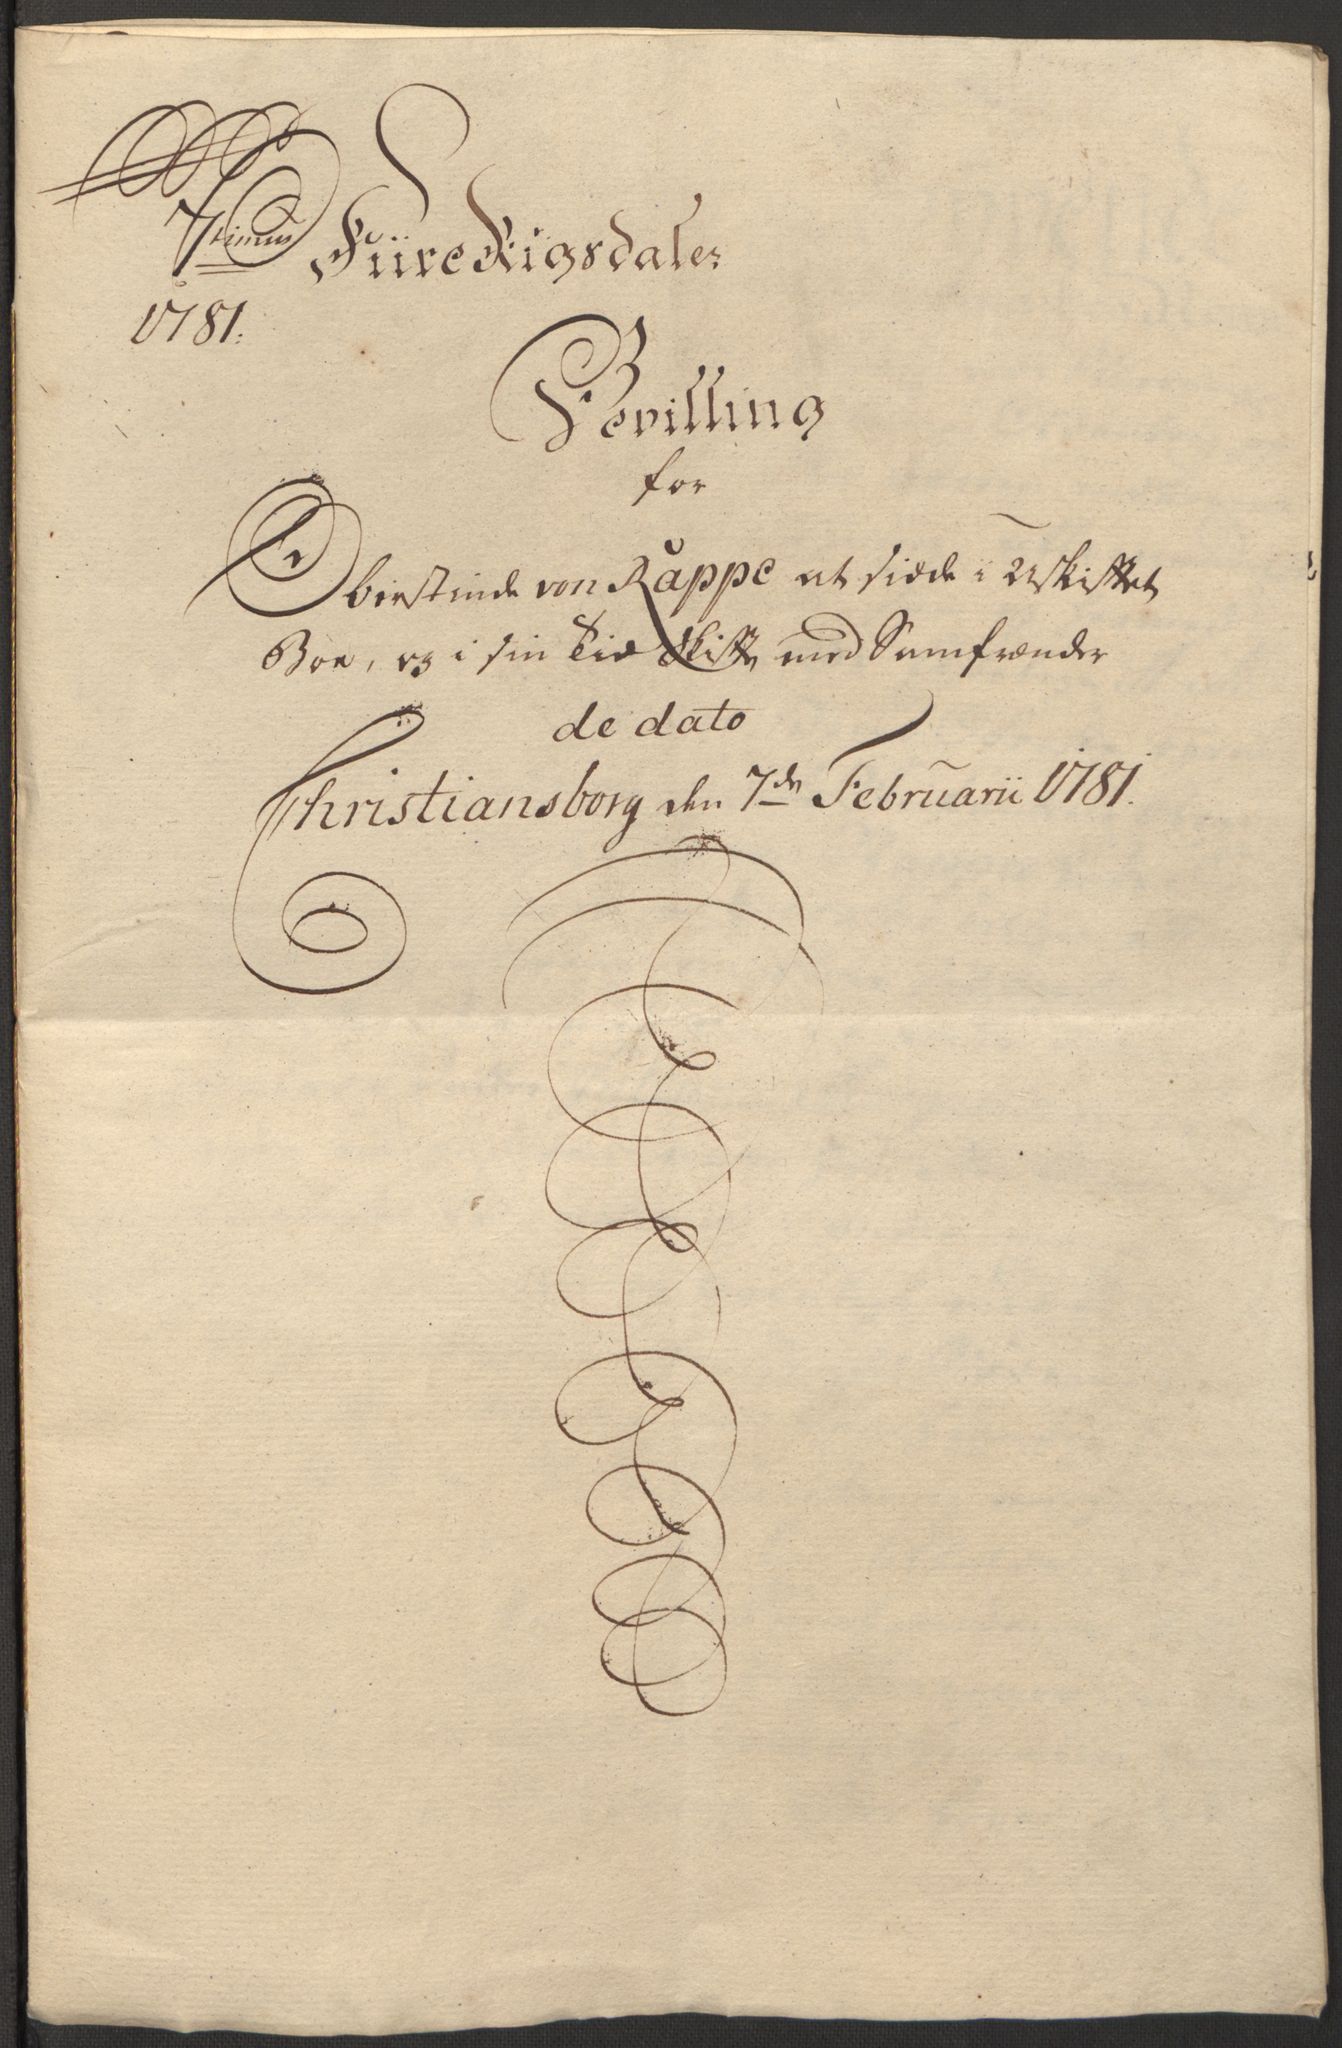 7timus Fiire Rigsdaler
1781.
Bevilling
for
Oberstinde von Rappe at sidde i Uskiftet
Boe, og i sin Tid Skifte med Samfrænder
de dato
Christiansborg den 7de Februarii 1781.